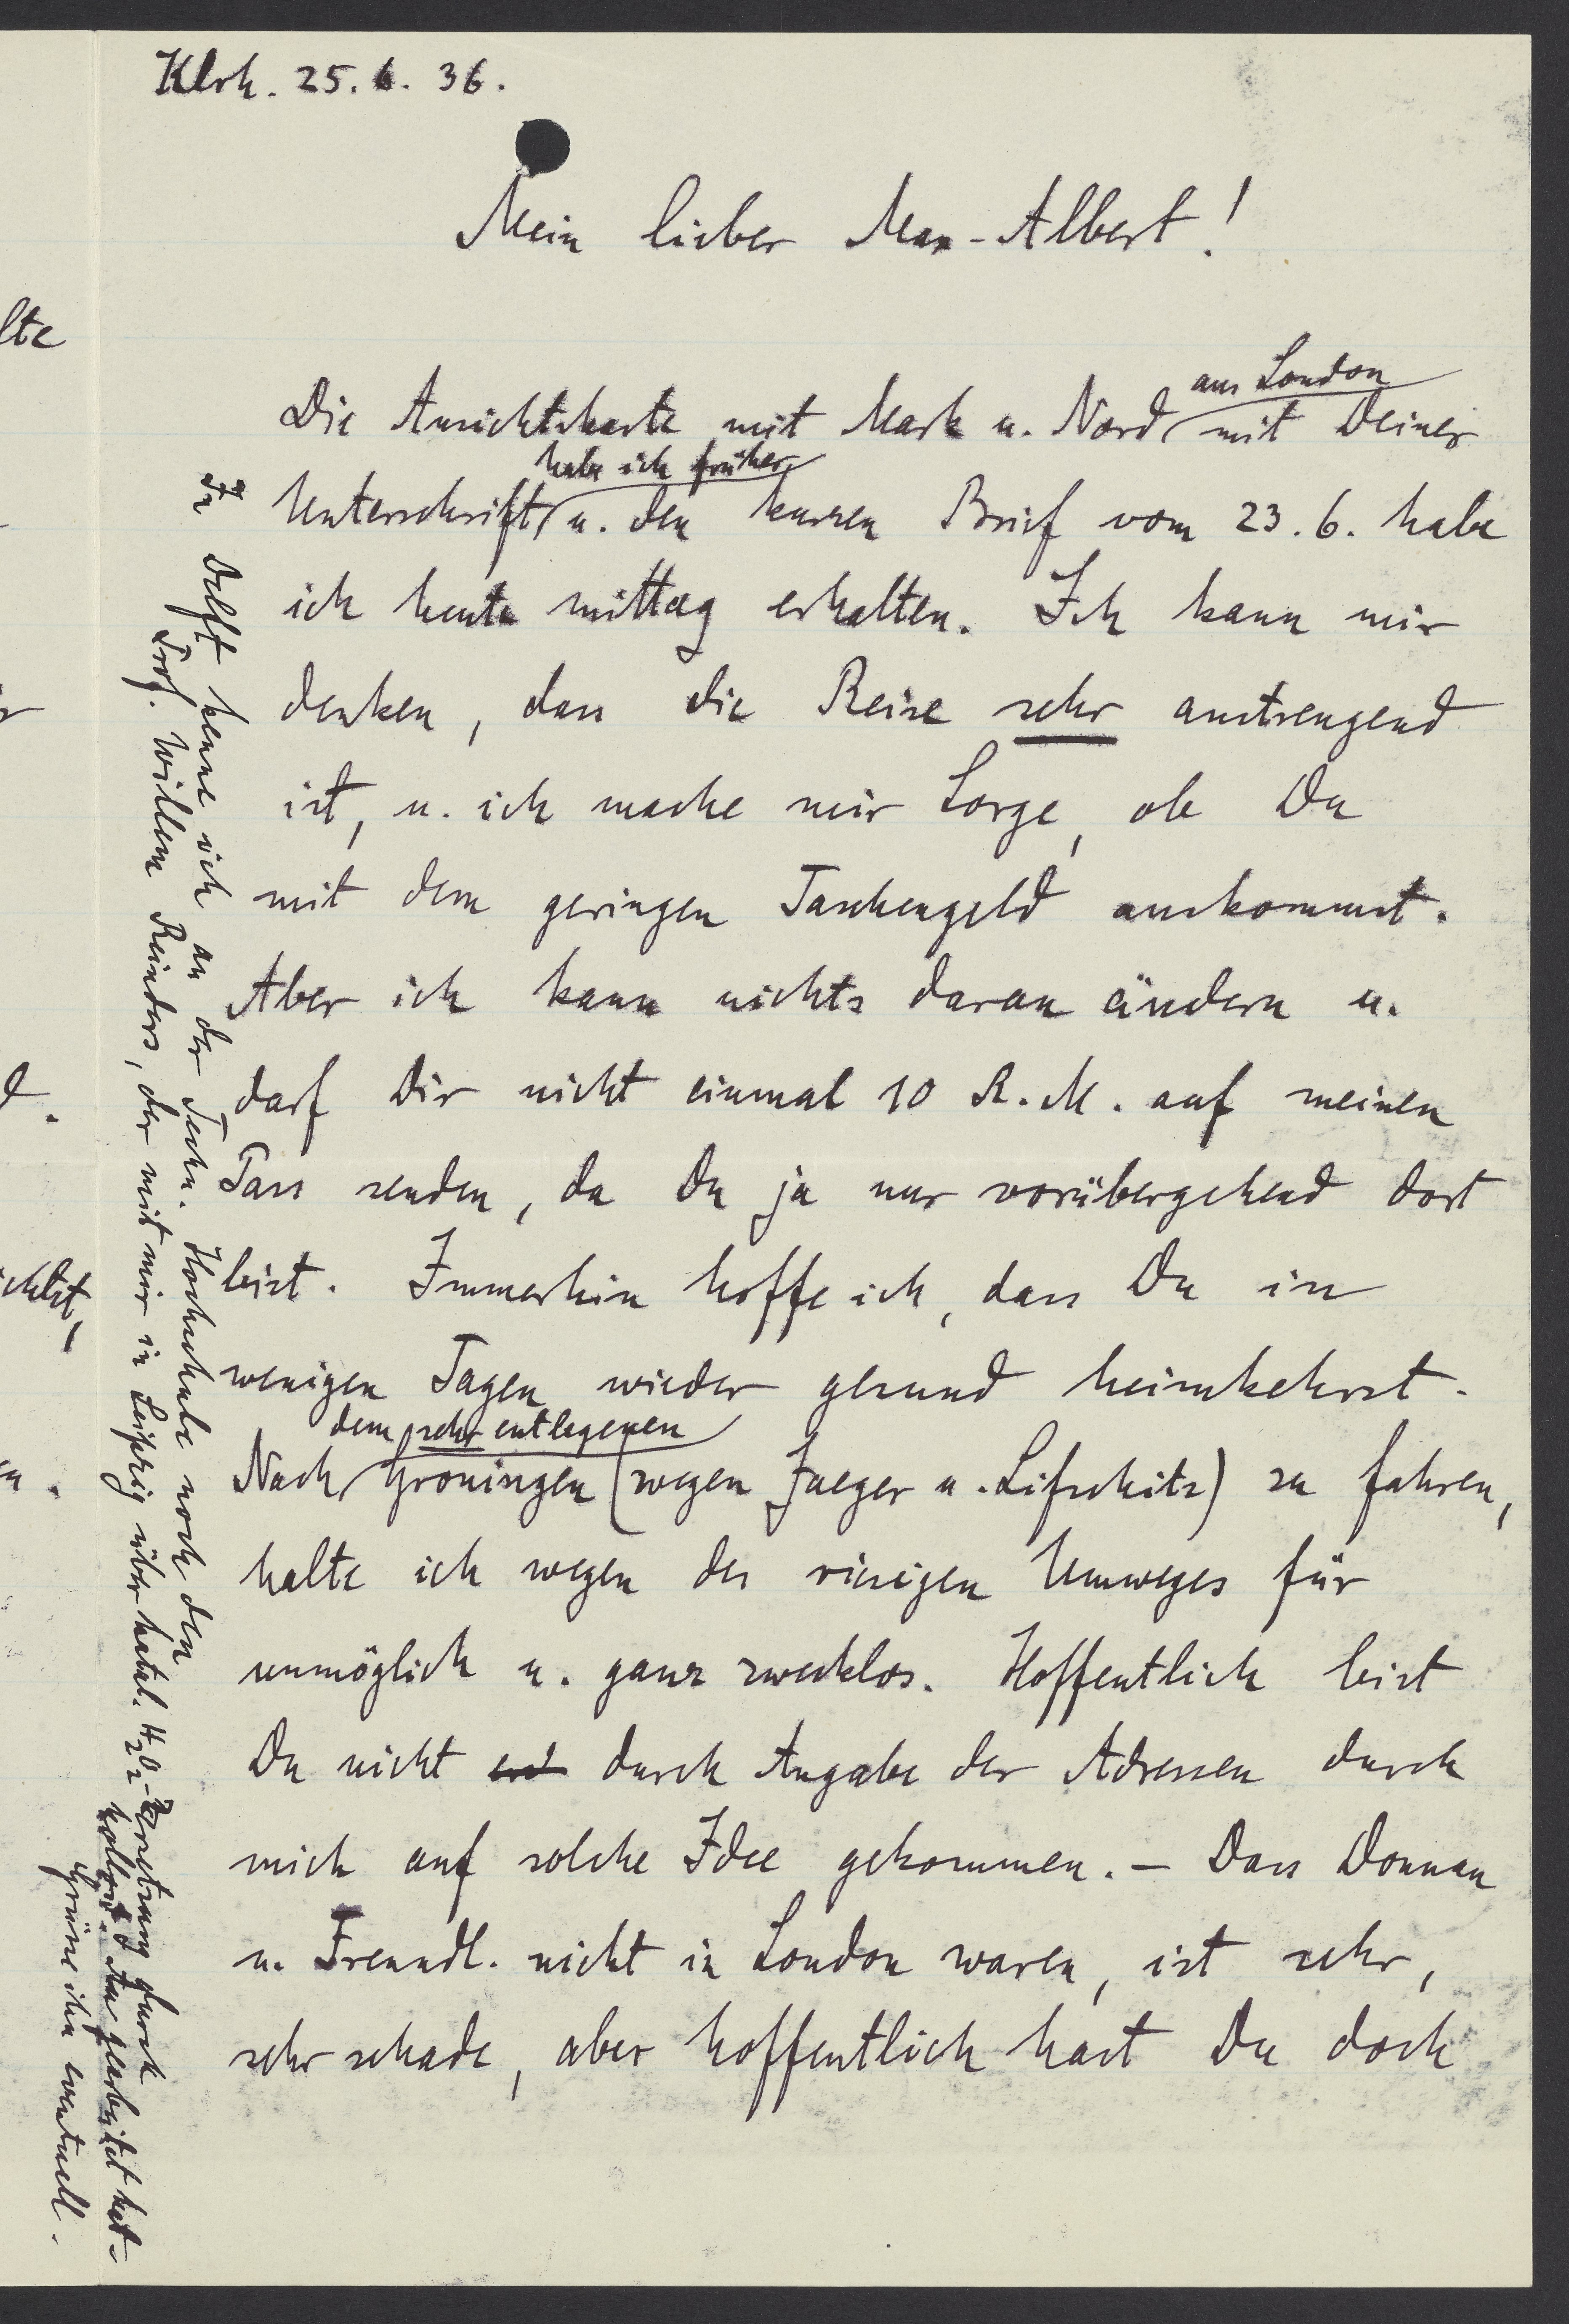 Klrh. 25. 6. 36.
Mein lieber Max-Albert!
aus London
Die Ansichtskarte mit Mark u. Nord mit Deiner
habe ich früher
Unterschrift u. den kurzen Brief vom 23. 6. habe
ich heute mittag erhalten. Ich kann mir
denken, dass die Reise sehr anstrengend
ist, u. ich mache mir Sorge, ob Du
mit dem geringen Taschengeld auskommst.
Aber ich kann nichts daran ändern u.
darf Dir nicht einmal 10 R.M. auf meinen
Pass senden, da Du ja nur vorübergehend dort
bist. Immerhin hoffe ich, dass Du in
wenigen Tagen wieder gesund heimkehrst.
dem sehr entlegenen
Nach Groningen (wegen Jaeger u. Lifschitz) zu fahren,
halte ich wegen des riesigen Umweges für
unmöglich u. ganz zwecklos. Hoffentlich bist
Du nicht erst durch Angabe der Adressen durch
mich auf solche Idee gekommen. – Dass Donnan
u. Freundl. nicht in London waren, ist sehr,
sehr schade, aber hoffentlich hast Du doch
In Delft kenne ich an der Techn. Hochschule noch den
Prof. Willem Reinders, der mit mir in Leipzig über katal. H2O2-Zersetzung durch
kolloid. Au gearbeitet hat –
Grüne ihn eventuell.
lte
d.